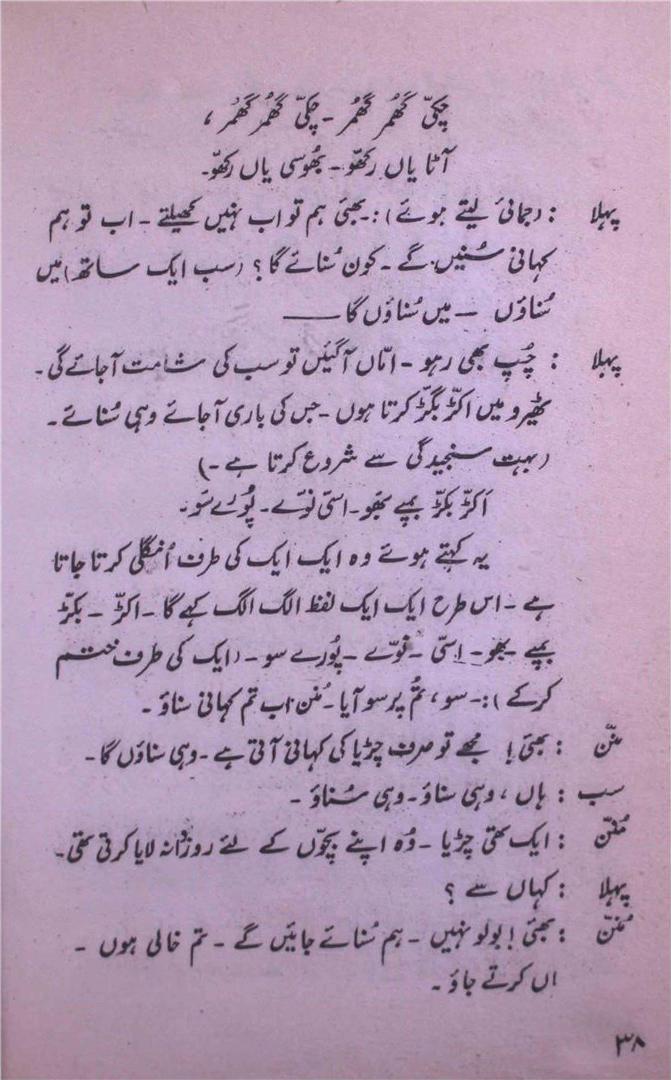 چکّی گھُمر گھُمر - چکّی گھُمر گھُمر ،
آٹا یاں رکھّو - بھُوسی یاں رکھّو -
پہلا : (جمائی لیتے ہوئے) :- بھئی ہم تو اب نہیں کھیلتے - اب تو ہم
کہانی سُنیں گے - کون سُنائے گا ؟ (سب ایک ساتھ) میں
سُناؤں — میں سُناؤں گا ——
پہلا : چُپ بھی رہو - امّاں آگئیں تو سب کی شامت آجائے گی -
ٹھیرو میں اکڑّ بکڑّ کرتا ہوں - جس کی باری آجائے وہی سُنائے -
(بہت سنجیدگی سے شروع کرتا ہے -)
اَکڑّ بکڑّ بمبے بھَو - اسّی نوّے - پُورے سَو -
یہ کہتے ہوئے وہ ایک ایک کی طرف اُنگلی کرتا جاتا
ہے - اس طرح ایک ایک لفظ الگ الگ کہے گا - اکڑّ - بکڑّ
بمبے - بھو - اسّی - نوّے - پُورے سو - (ایک کی طرف ختم
کرکے) :- سو ، تمُ پر سو آیا - مُنن اب تم کہانی سناؤ -
منّن : بھئی! مجھے تو صرف چڑیا کی کہانی آتی ہے - وہی سناؤں گا -
سب : ہاں ، وہی سناؤ - وہی سُناؤ -
مُنّن : ایک تھی چڑیا - وُہ اپنے بچّوں کے لئے روزانہ لایا کرتی تھی -
پہلا : کہاں سے ؟
مُنّن : بھئی! بولو نہیں - ہم سُنائے جائیں گے - تم خالی ہوں -
اں کرتے جاؤ -
۳۸